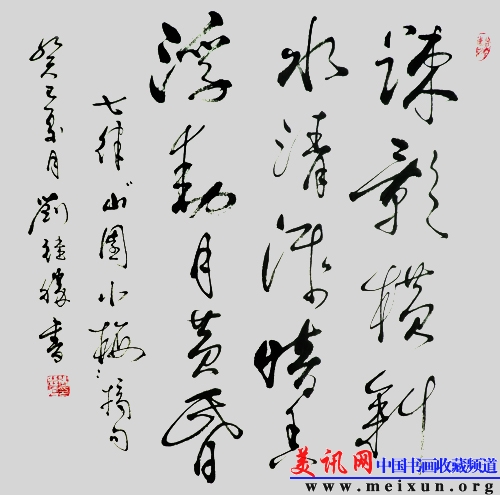 疎影横斜
水清浅暗香
浮動月黄昏
七律山園小梅摘句
癸巳夏月 劉勝書
美讯网 中国书画收藏频道
www.meixun.org